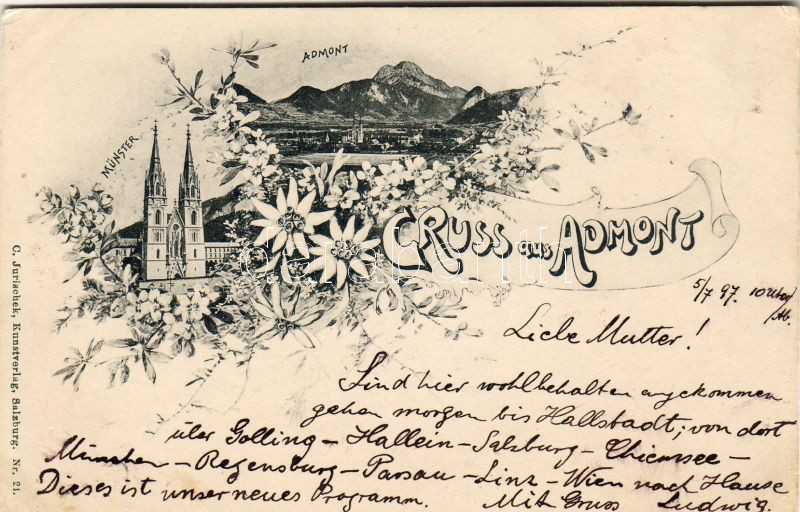 ADMONT
MÜNSTER
GRUSS aus ADMONT
5/7 97. 10 Uhr/
Ab.
Liebe Mutter!
Sind hier wohlbehalten angekommen
gehen morgen bis Hallstadt; von dort
über Golling - Hallein - Salzburg - Chiemsee -
München - Regensburg - Passau - Linz - Wien nach Hause
Dieses ist unser neues Programm. Mit Gruss Ludwig.
C. Jurischek, Kunstverlag, Salzburg. Nr. 21.